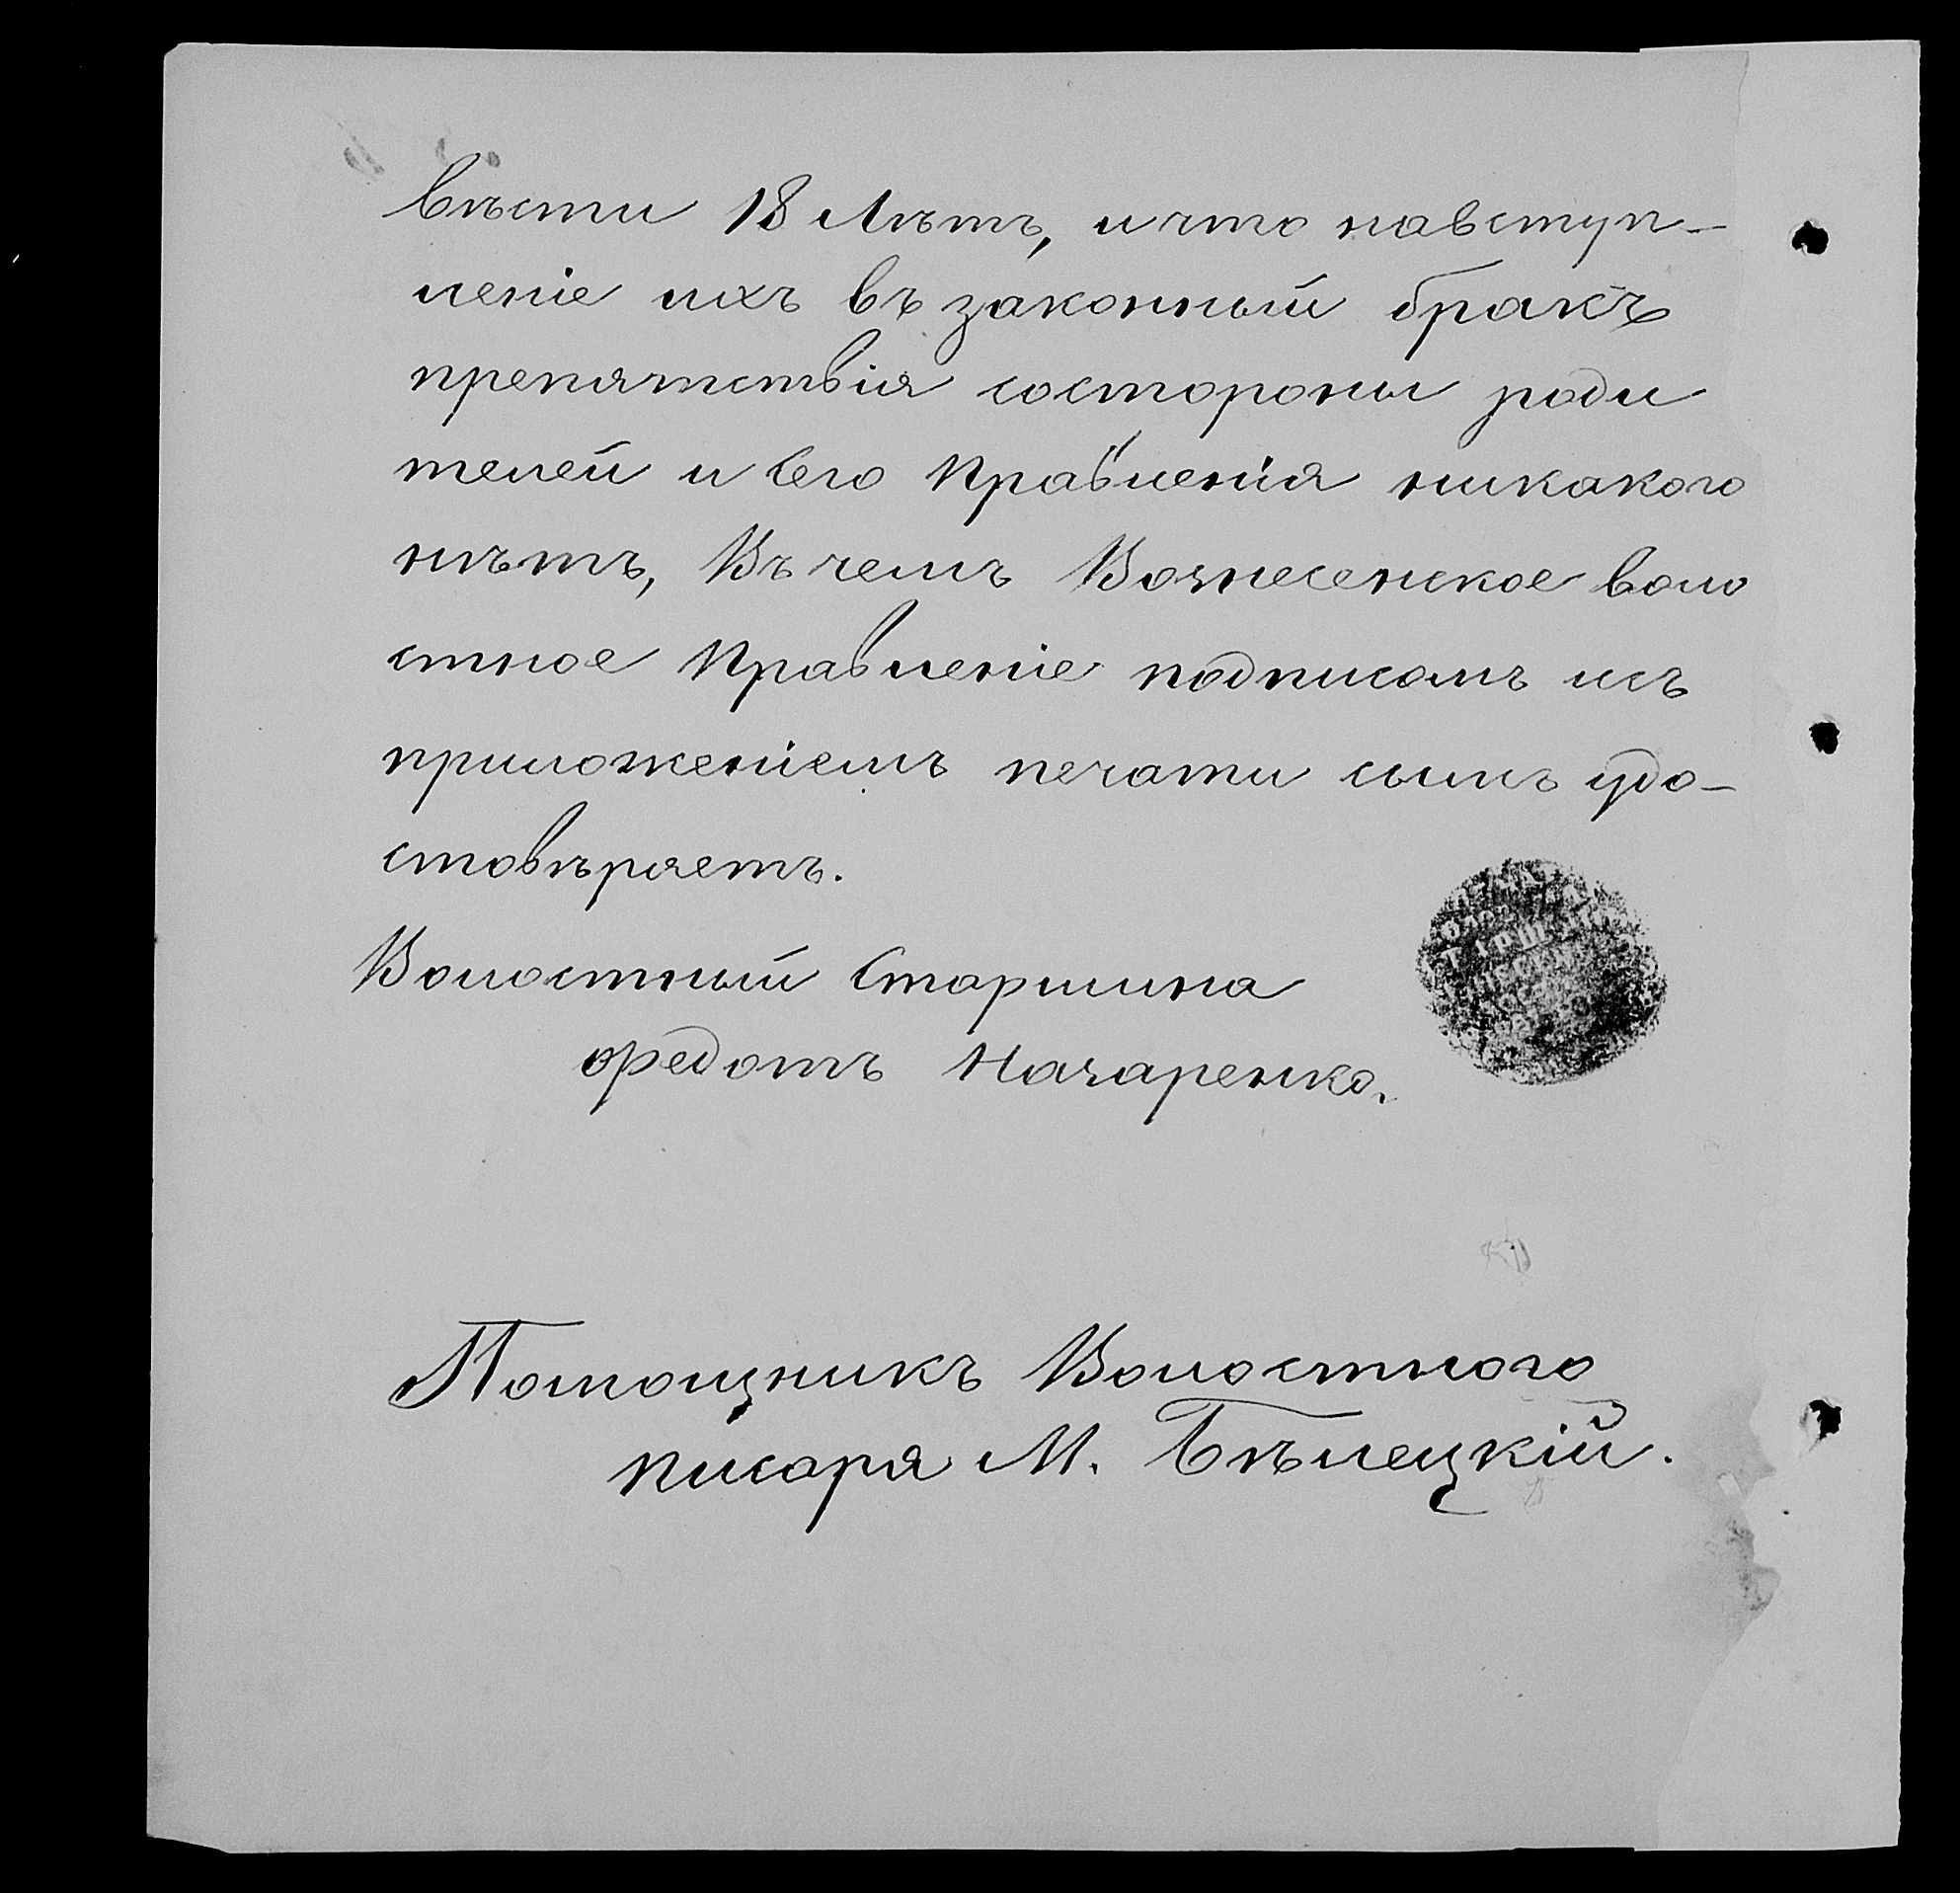 вѣсти 18 Лѣтъ, и что навступ-
леніе ихъ въ законный бракъ
препятствія состороны роди
телей и Сего Правленія никакого
нѣтъ, Въ чемъ Вознесенское воло
стное Правленіе подписомъ исъ
приложеніемъ печати симъ удо-
стовѣряетъ.
Волостный Старшина
Федотъ Назаренко.
Помощникъ Волостного
писаря М. Бѣлецкій.